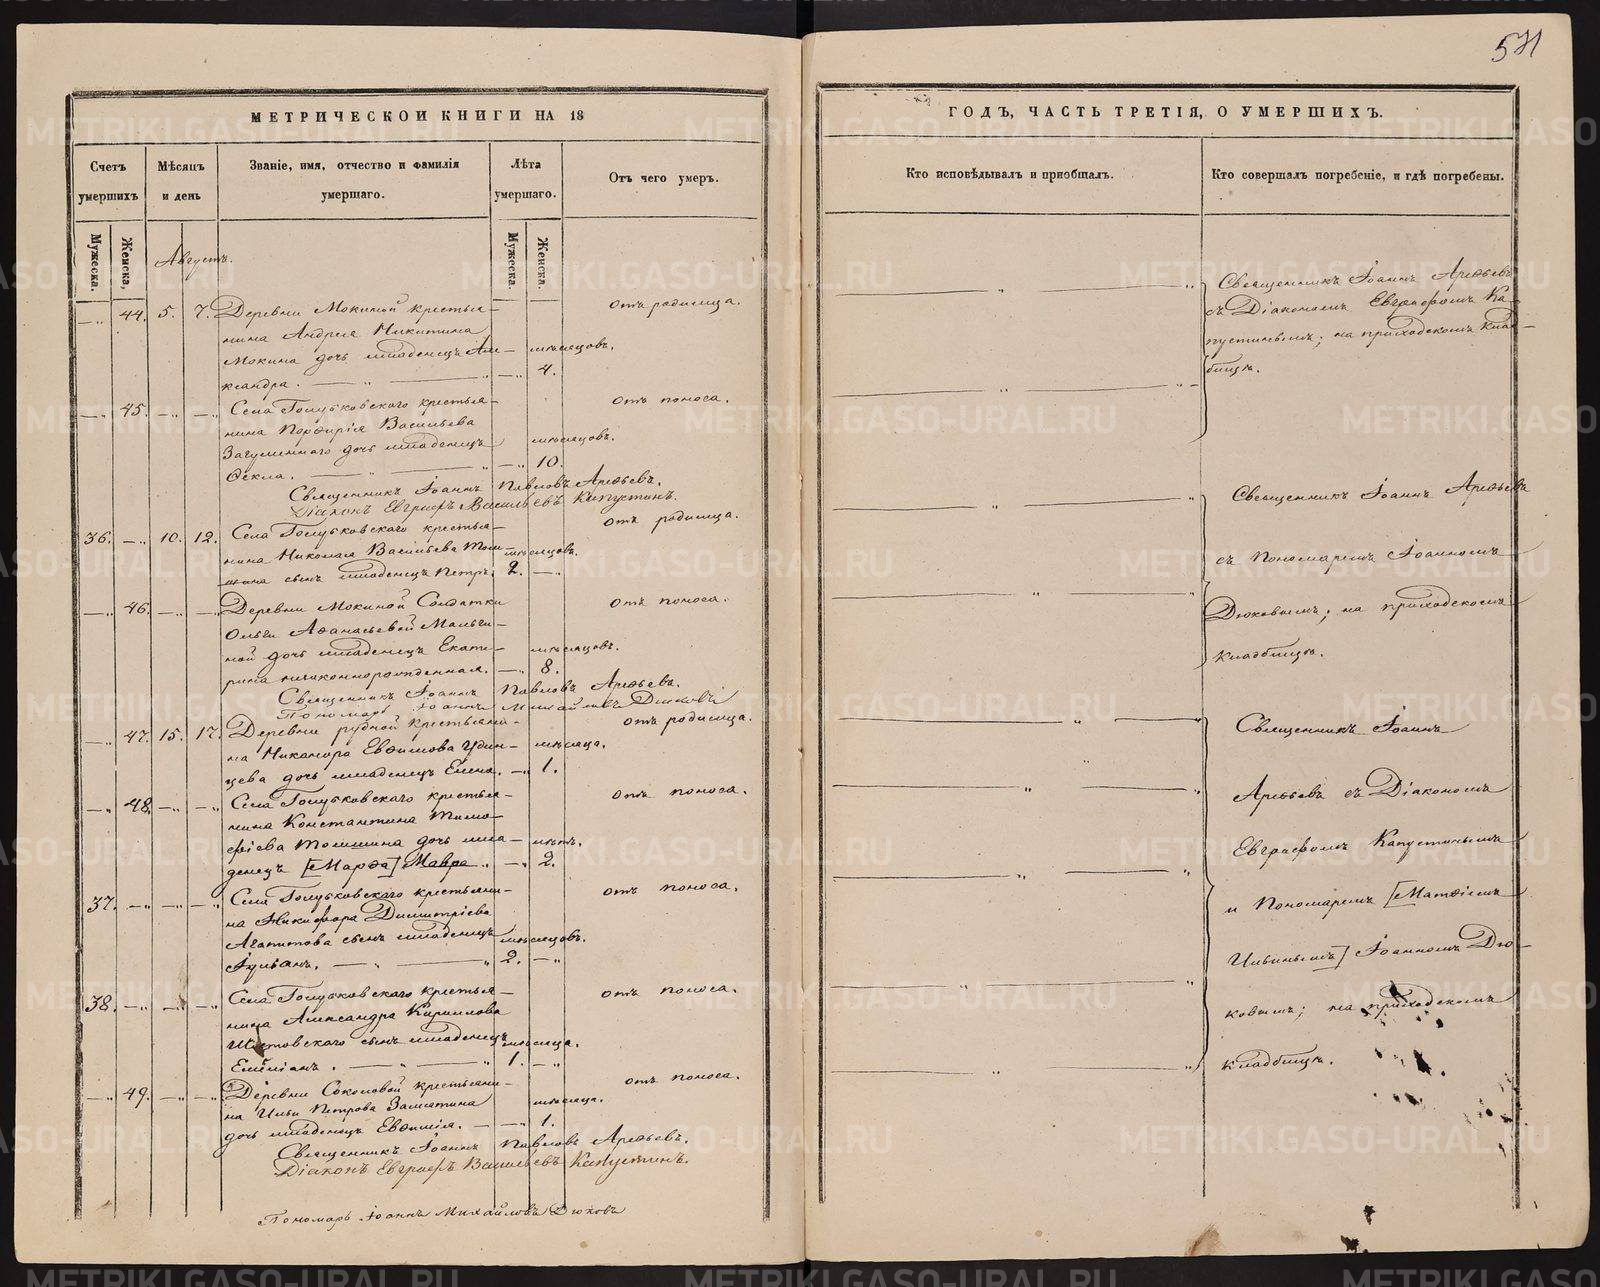 571
МЕТРИЧЕСКОЙ КНИГИ НА 18
Счетъ умершихъ
Мѣсяцъ и день
Званіе, имя, отчество и фамилія умершаго.
Лѣта умершаго.
Отъ чего умеръ.
Мужеска.
Женска,
Мужеска.
Женска.
Августъ.
—„ 44. 5. 7. Деревни Мокиной крестья- отъ родимца.
нина Андрея Никитина
Мокина дочь младенецъ Але- мѣсяцовъ.
ксандра. — „ — „ —„ 4.
—„ 45. —„ —„ Села Голубковскаго крестья- отъ поноса.
нина Порфирія Васильева
Загуменнаго дочь младенецъ мѣсяцовъ.
Ѳекла. — „ — „ —„ 10.
Священникъ Іоаннъ Павловъ Арефьевъ.
Діаконъ Евграфъ Васильевъ Капустинъ.
36. —„ 10. 12. Села Голубковскаго крестья- отъ родимца.
нина Николая Васильева Том- мѣсяцовъ.
шина сынъ младенецъ Петръ. 2. —„
—„ 46. —„ —„ Деревни Мокиной Солдатки отъ поноса.
Ольги Аѳанасьевой Мальги-
ной дочь младенецъ Екате- мѣсяцовъ.
рина незаконнорожденная. —„ 8.
Священникъ Іоаннъ Павловъ Арефьевъ.
Пономарь Іоаннъ Михайловъ Дюковъ
—„ 47. 15. 17. Деревни рудной крестьяни- отъ родимца.
на Никанора Евѳимова Удин- мѣсяца.
цева дочь младенецъ Елена. —„ 1.
—„ 48. —„ —„ Села Голубковскаго крестья- отъ поноса.
нина Константина Тимо-
фѣева Томшина дочь мла- лѣтъ.
денецъ [Марѳа] Мавра. —„ 2.
37. —„ —„ —„ Села Голубковскаго крестьяни- отъ поноса.
на Никифора Димитріева
Агапитова сынъ младенецъ мѣсяцовъ.
Іуліанъ. — „ — „ 2. —„
38. —„ —„ —„ Села Голубковскаго крестья- отъ поноса.
нина Александра Кириллова
сынъ младенецъ мѣсяца.
Емиліанъ. — „ — „ 1. —„
—„ 49. —„ —„ Деревни Соколовой крестьяни- отъ поноса.
на Ильи Петрова Замятина мѣсяца.
дочь младенецъ Евѳимія. — —„ 1.
Священникъ Іоаннъ Павловъ Арефьевъ.
Діаконъ Евграфъ Васильевъ Капустинъ.
Пономарь Іоаннъ Михайловъ Дюковъ
ГОДЪ, ЧАСТЬ ТРЕТІЯ, О УМЕРШИХЪ.
Кто исповѣдывалъ и пріобщалъ.
Кто совершалъ погребеніе, и гдѣ погребены.
Священникъ Іоаннъ Арефьевъ
съ Діакономъ Евграфомъ Ка-
пустинымъ; на приходскомъ клад-
бищѣ.
Священникъ Іоаннъ Арефьевъ
съ Пономаремъ Іоанномъ
Дюковымъ; на приходскомъ
кладбищѣ.
Священникъ Іоаннъ
Арефьевъ съ Діакономъ
Евграфомъ Капустинымъ
и Пономаремъ [Матѳіемъ
Ильинымъ] Іоанномъ Дю-
ковымъ; на приходскомъ
кладбищѣ.
METRIKI.GASO-URAL.RU